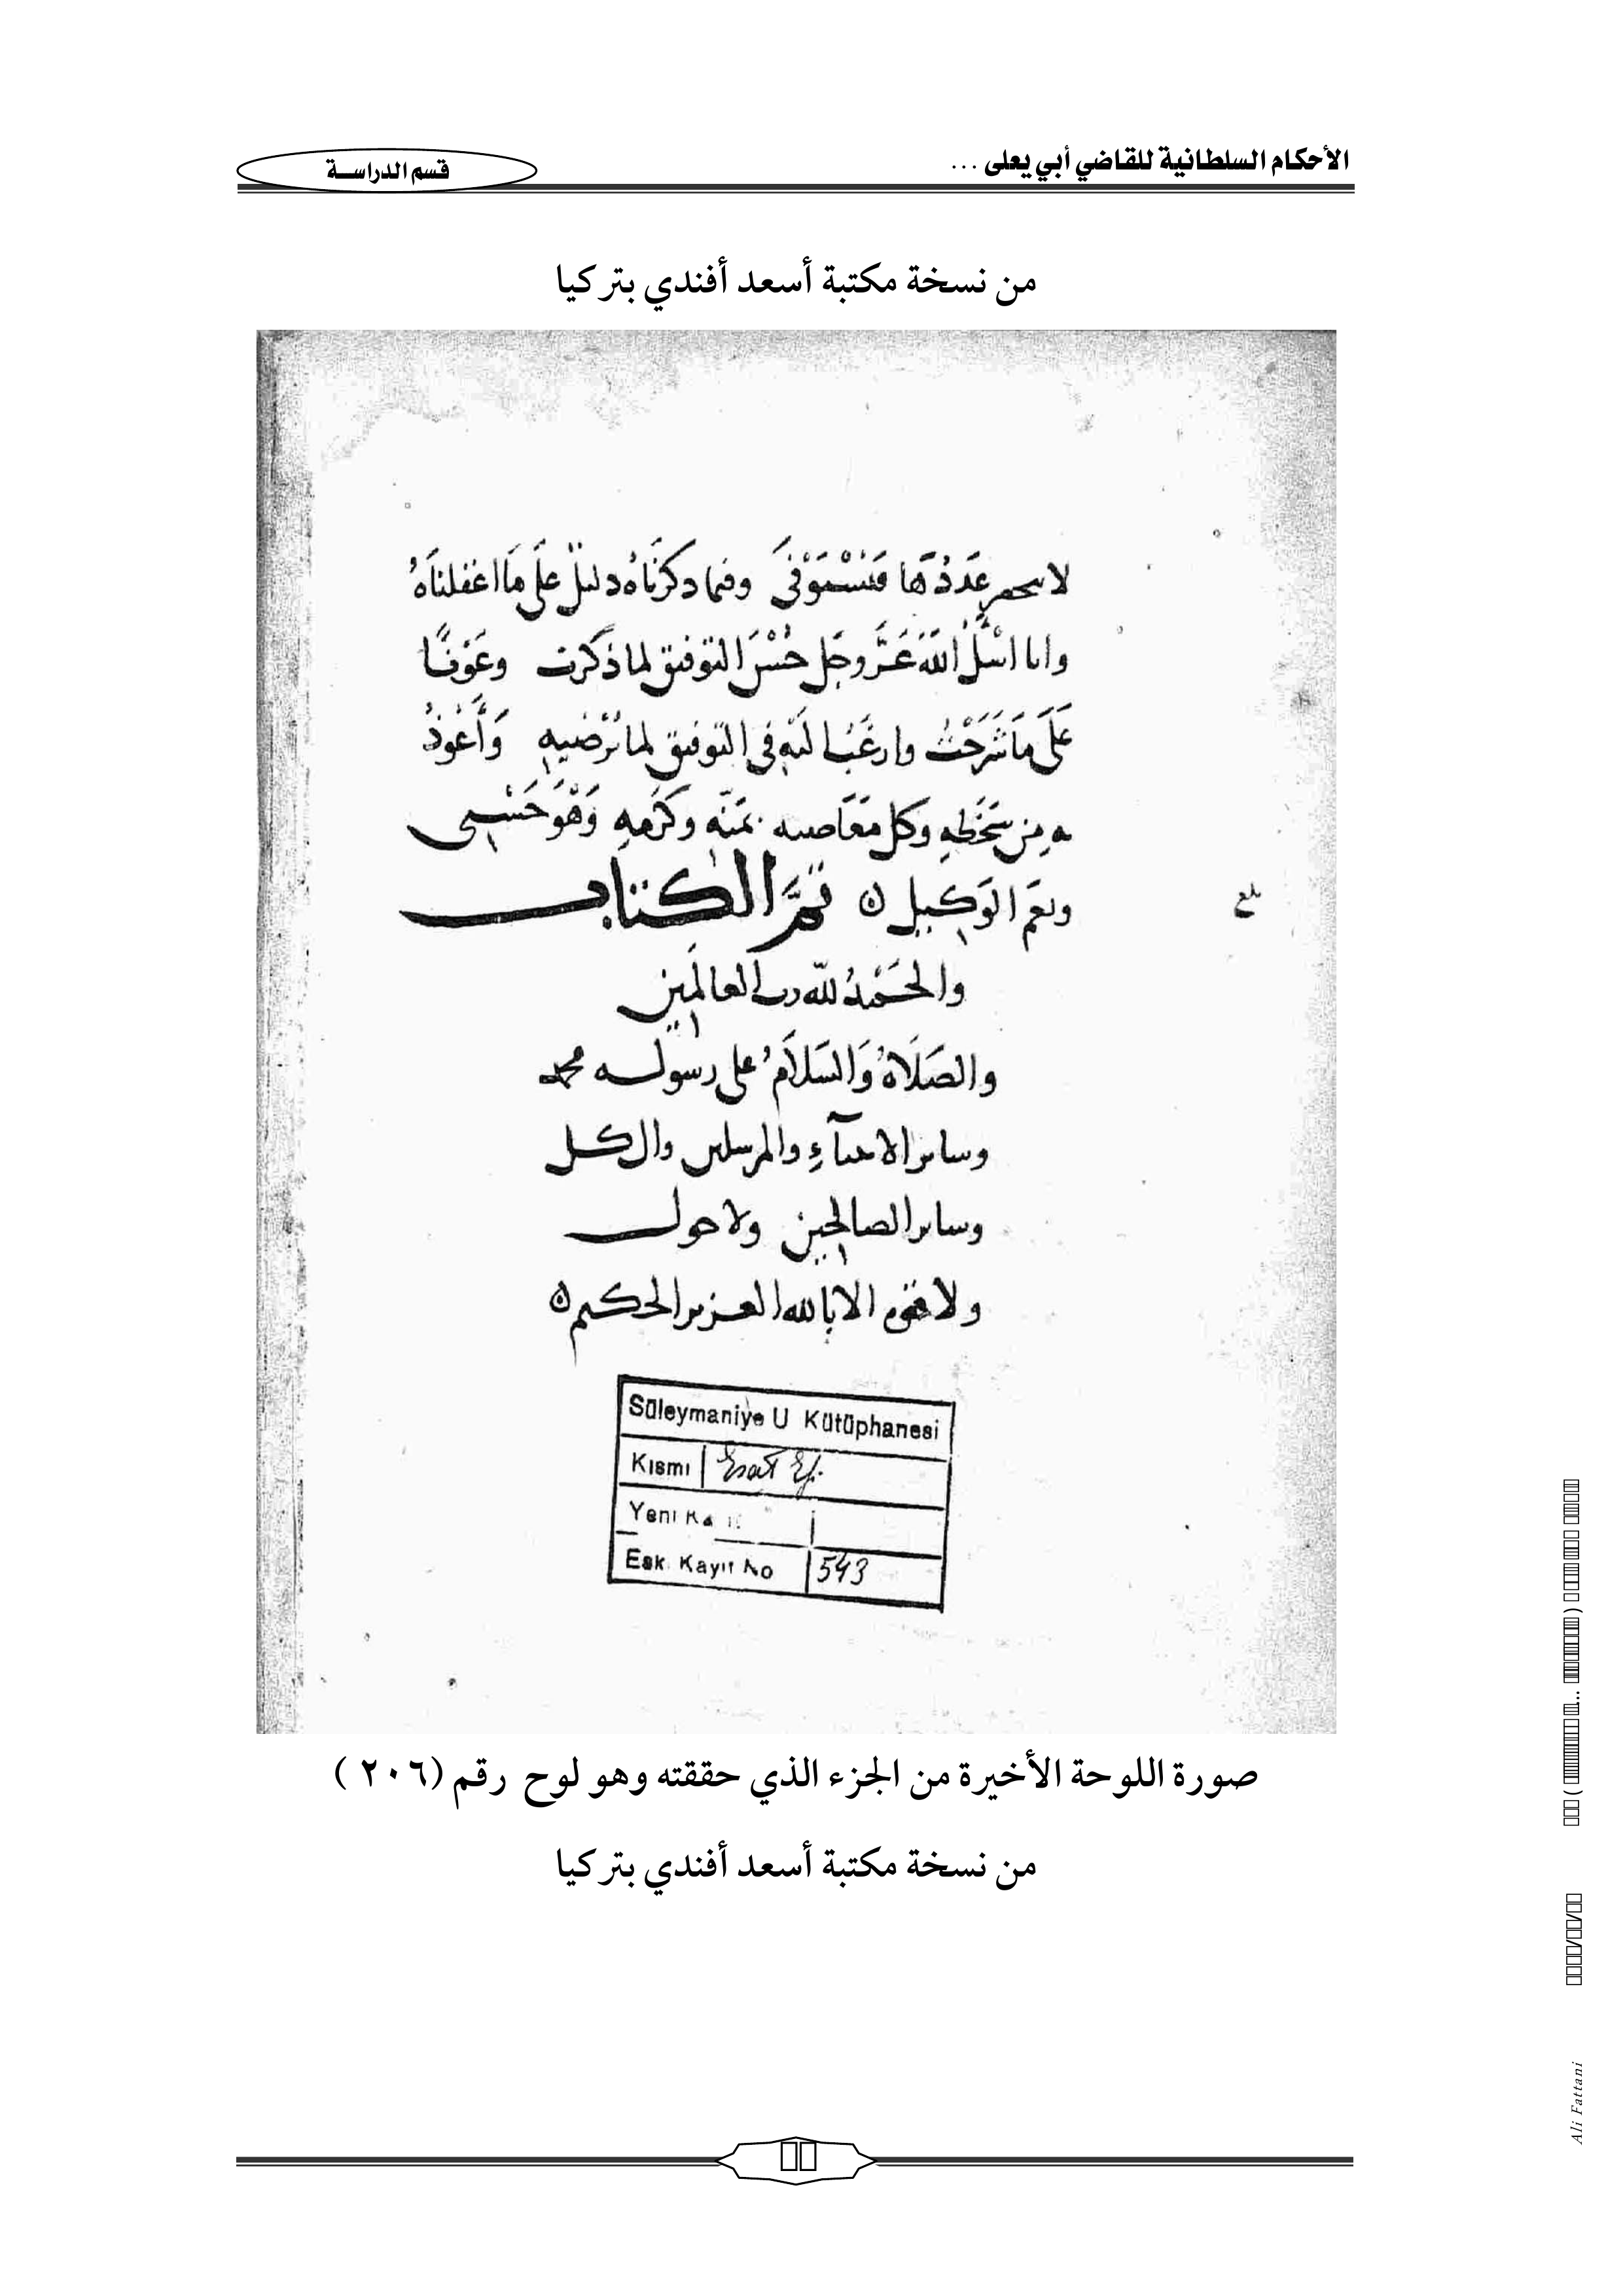 الأحكام السلطانية للقاضي أبي يعلى ...
قسم الدراســة
من نسخة مكتبة أسعد أفندي بتركيا
لا ينحصر عَدَدُهَا فنَسْتَوْفىَ وفيما ذكرنَاهُ دليلٌ علَى مَا اغفلنَاهُ
وانا اسْئَلُ اللهَ عَزَّ وجَل حُسْنَ التوفيق لما ذكَرت وعَوْنًا
عَلَى مَا شَرَحْتُ وارغَبُ اليْهِ في التوفيق لما يُرْضيهِ وَأَعُوذُ
بهِ مِن سَخَطِهِ وكل مَعَاصيه بمَنّهِ وكَرَمهِ وَهْوَ حَسْبِي
ونعَم الوَكِيل ه تمَّ الكتاب
بلغ
والحَمْدُ للّه رب العالَمِين
والصَلَاةُ وَالسَلَامُ على رسوله محمد
وساير الانبيآءِ والمرسلين وال كل
وساير الصالحين ولا حول
ولا قوة الا بالله العزيز الحكيم ه
Süleymaniye U Kütüphanesi
Kısmı Esat Ef.
Yeni Ka
Esk. Kayıt No 543
صورة اللوحة الأخيرة من الجزء الذي حققته وهو لوح رقم (٢٠٦ )
من نسخة مكتبة أسعد أفندي بتركيا
Ali Fattani